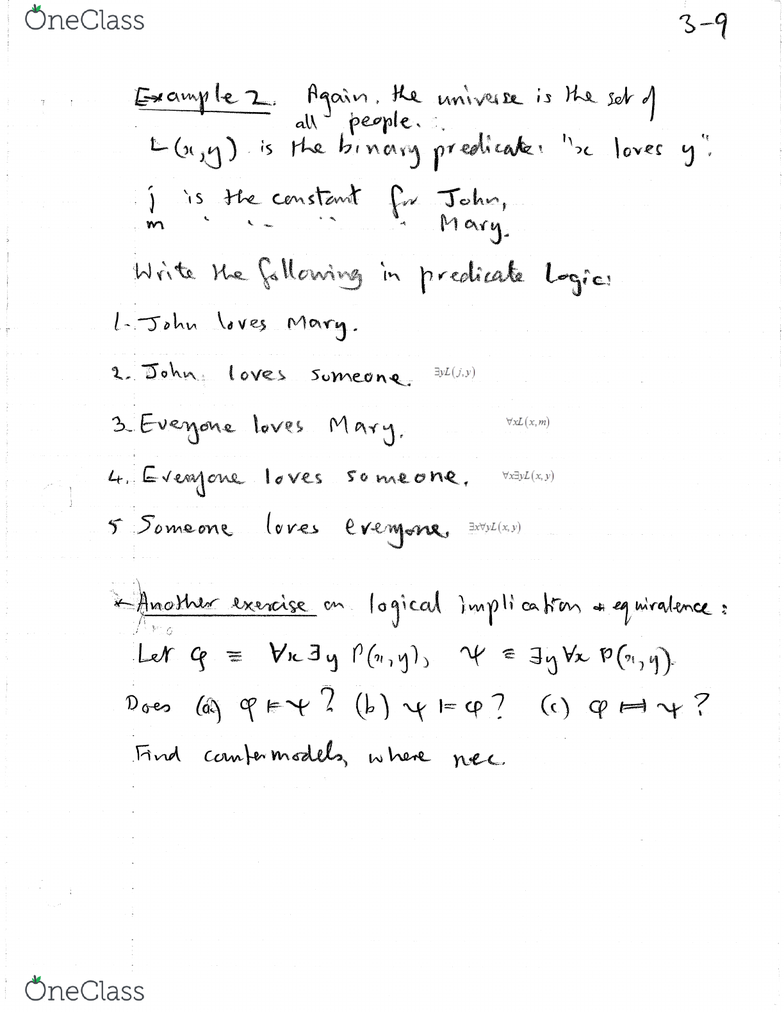 OneClass
3-9
Example 2. Again, the universe is the set of
all people.
L(x,y) is the binary predicate: "x loves y".
j is the constant for John,
m " " " " Mary.
Write the following in predicate logic:
1. John loves Mary.
2. John loves someone. ∃yL(j,y)
3. Everyone loves Mary. ∀xL(x,m)
4. Everyone loves someone. ∀x∃yL(x,y)
5 Someone loves everyone. ∃x∀yL(x,y)
* Another exercise on logical implication & equivalence:
Let φ ≡ ∀x∃y P(x,y), ψ ≡ ∃y∀x P(x,y).
Does (a) φ ⊨ ψ? (b) ψ ⊨ φ? (c) φ ⊨⊣ ψ?
Find countermodels, where nec.
OneClass